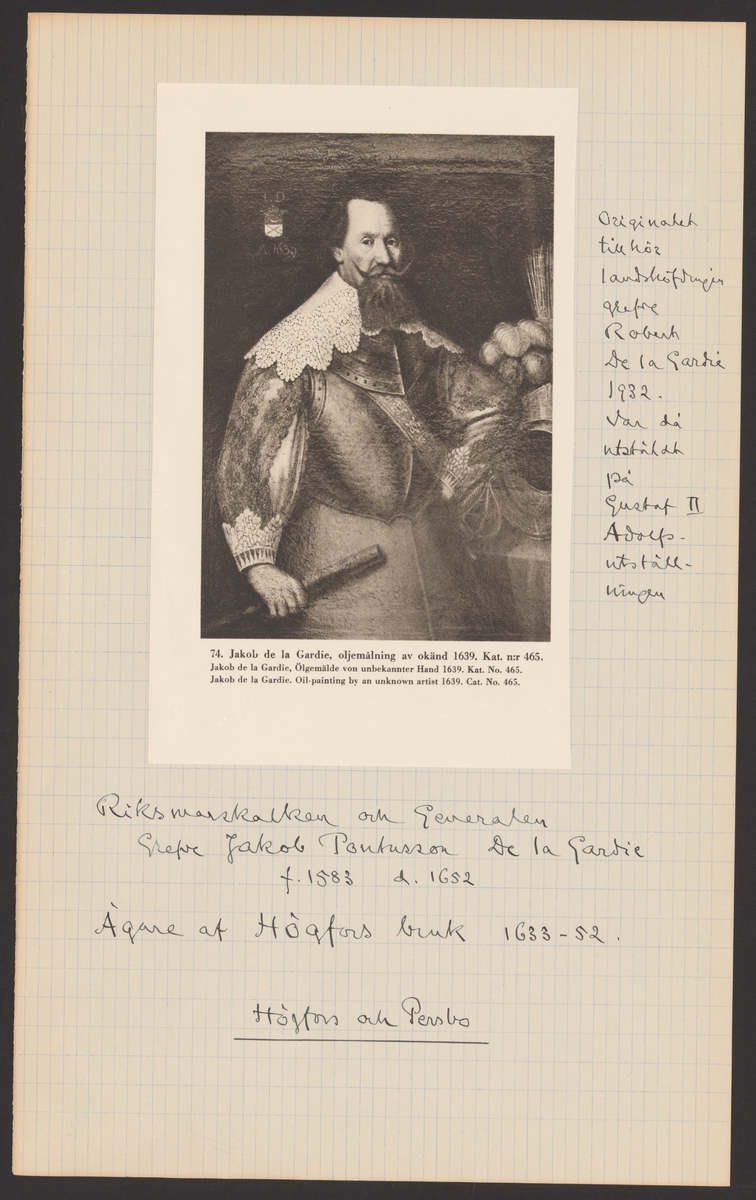 I. D
A. 1639
74. Jakob de la Gardie, oljemålning av okänd 1639. Kat. n:r 465.
Jakob de la Gardie, Ölgemälde von unbekannter Hand 1639. Kat. No. 465.
Jakob de la Gardie. Oil-painting by an unknown artist 1639. Cat. No. 465.
Originalet
tillhör
landshöfdingen
grefve
Robert
De la Gardie
1932.
Var då
utställdt
på
Gustaf II
Adolfs-
utställ-
ningen
Riksmarskalken och Generalen
Grefve Jakob Pontusson De la Gardie
f. 1583 d. 1652
Ägare af Högfors bruk 1633-52.
Högfors och Persbo